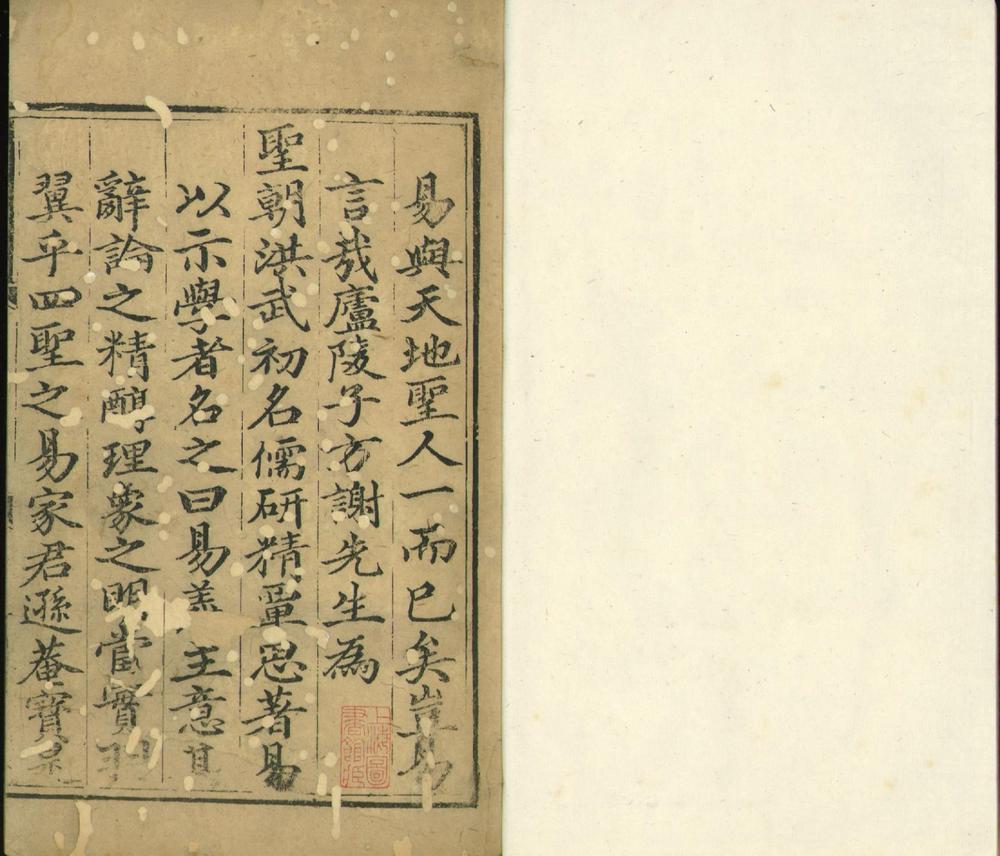 易與天地聖人一而已矣豈易
言哉廬陵子方謝先生為
聖朝洪武初名儒研精覃思著易
以示學者名之曰易義主意其
辭論之精醇理象之明當實羽
翼乎四聖之易家君遜菴寶是
上海圖
書館藏